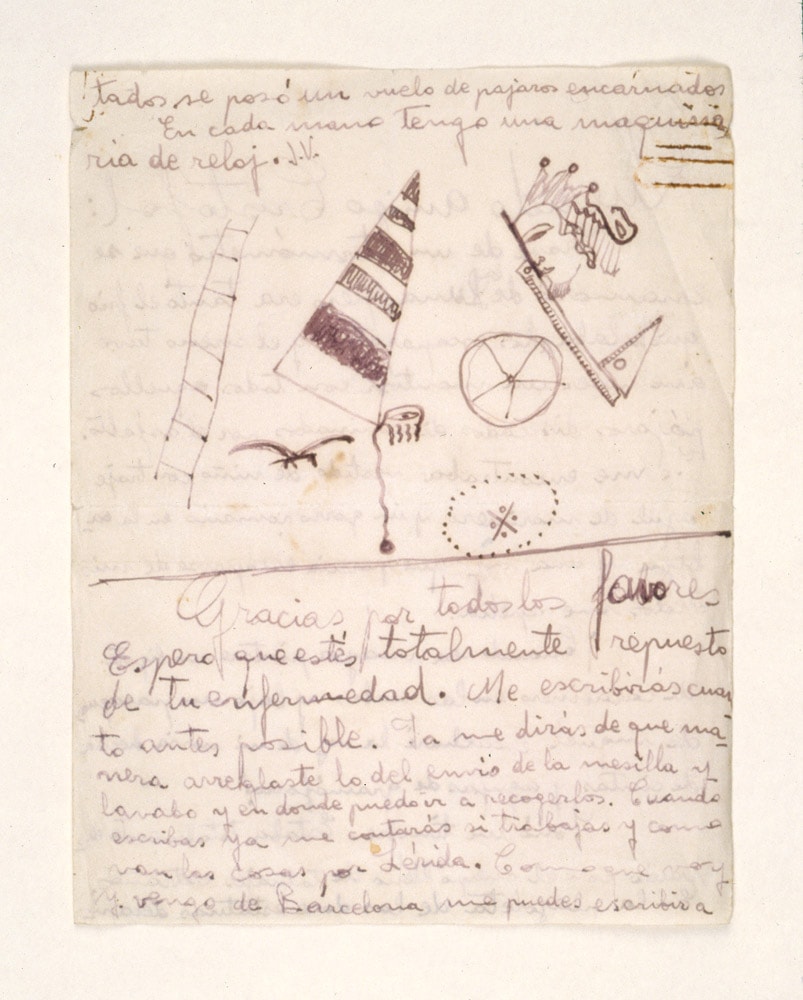 tados, se posó un vuelo de pajaros encarnados
En cada mano tengo una maquina
ria de reloj. J.V.
Gracias por todos los favores
Espero que estés totalmente repuesto
de tu enfermedad. Me escribirás cuan
to antes posible. Ya me dirás de que ma-
nera arreglaste lo del envio de la mesilla y
lavabo y en donde puedo ir a recogerlos. Cuando
escribas ya me contarás si trabajas y como
van las cosas por Lérida. Como que voy
y vengo de Barcelona me puedes escribir a